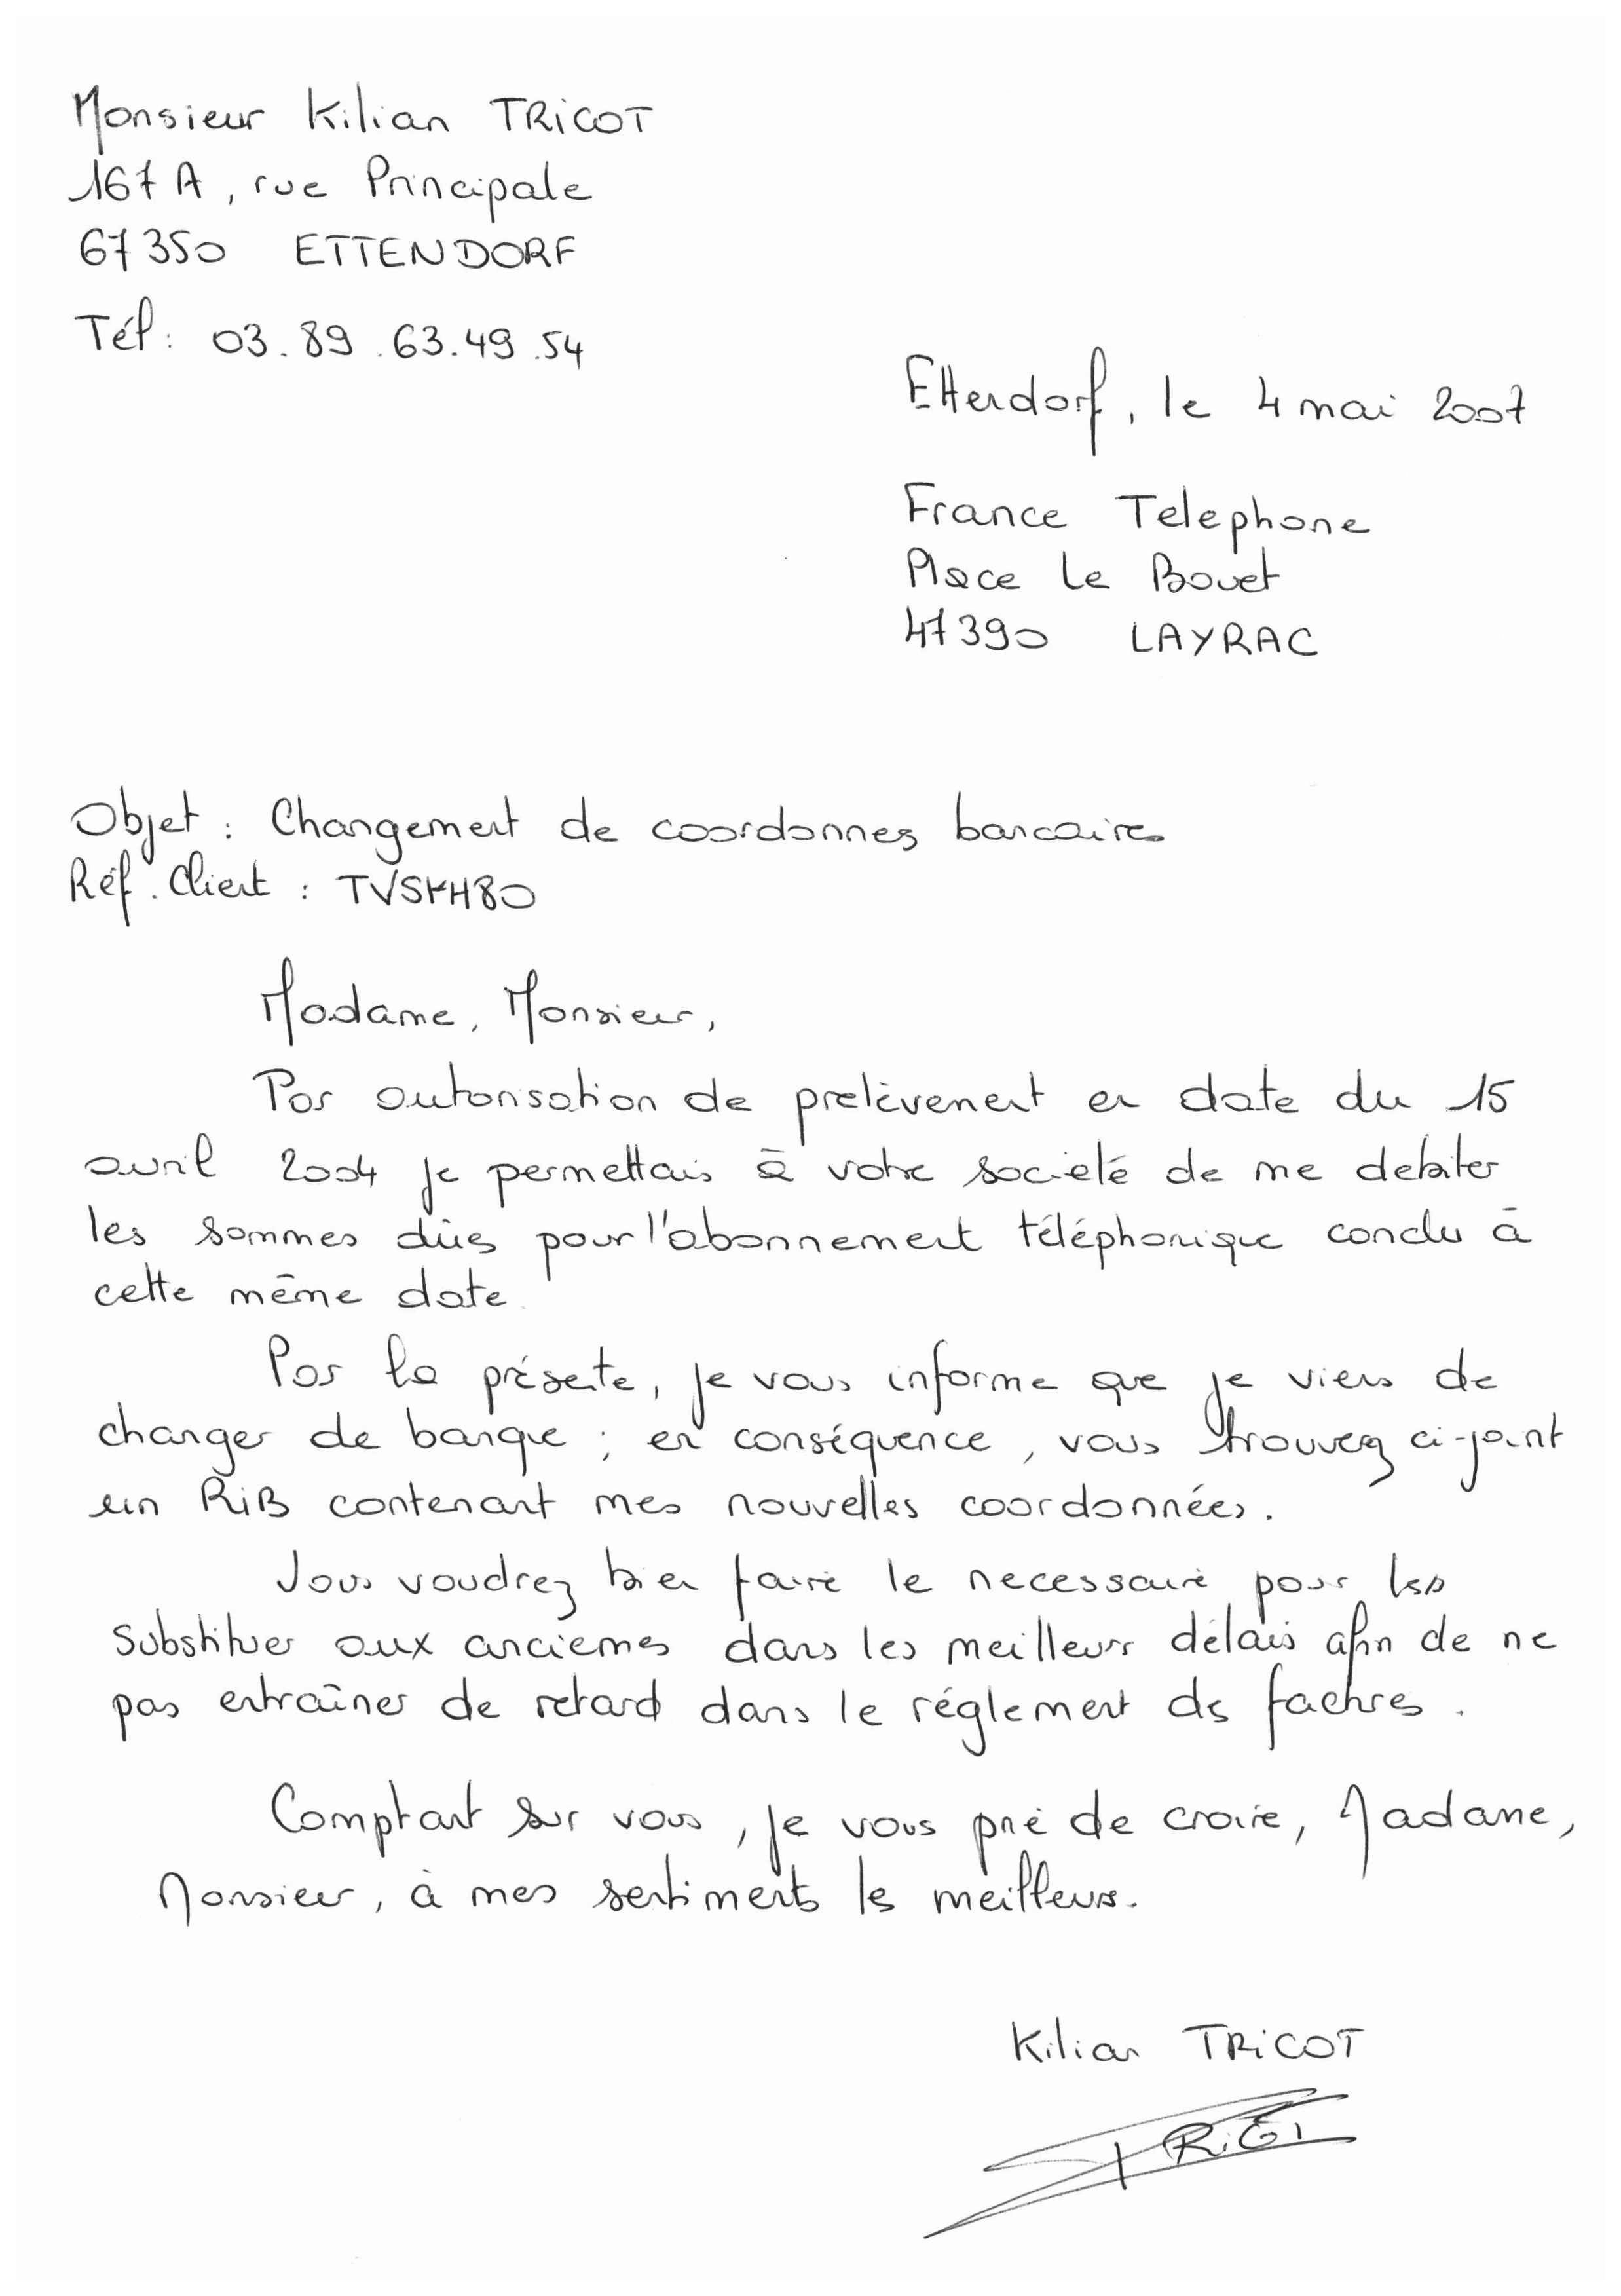 Monsieur Kilian TRICOT
167 A, rue Principale
67350 ETTENDORF
Tél: 03.89.63.49.54
Ettendorf, le 4 mai 2007
France Telephone
Place Le Bouet
47390 LAYRAC
Objet : Changement de coordonnes bancaires
Réf. Client : TVSKH80
Madame, Monsieur,
Par autorisation de prelèvement en date du 15
avril 2004 je permettais à votre société de me debiter
les sommes dûes pour l'abonnement téléphonique conclu à
cette même date.
Par la présente, je vous informe que je viens de
changer de banque ; en conséquence, vous trouvez ci-joint
un RIB contenant mes nouvelles coordonnées.
Vous voudrez bien faire le necessaire pour les
substituer aux anciennes dans les meilleurs délais afin de ne
pas entraîner de retard dans le réglement des factures.
Comptant sur vous, je vous prie de croire, Madame,
Monsieur, à mes sentiments les meilleurs.
Kilian TRICOT